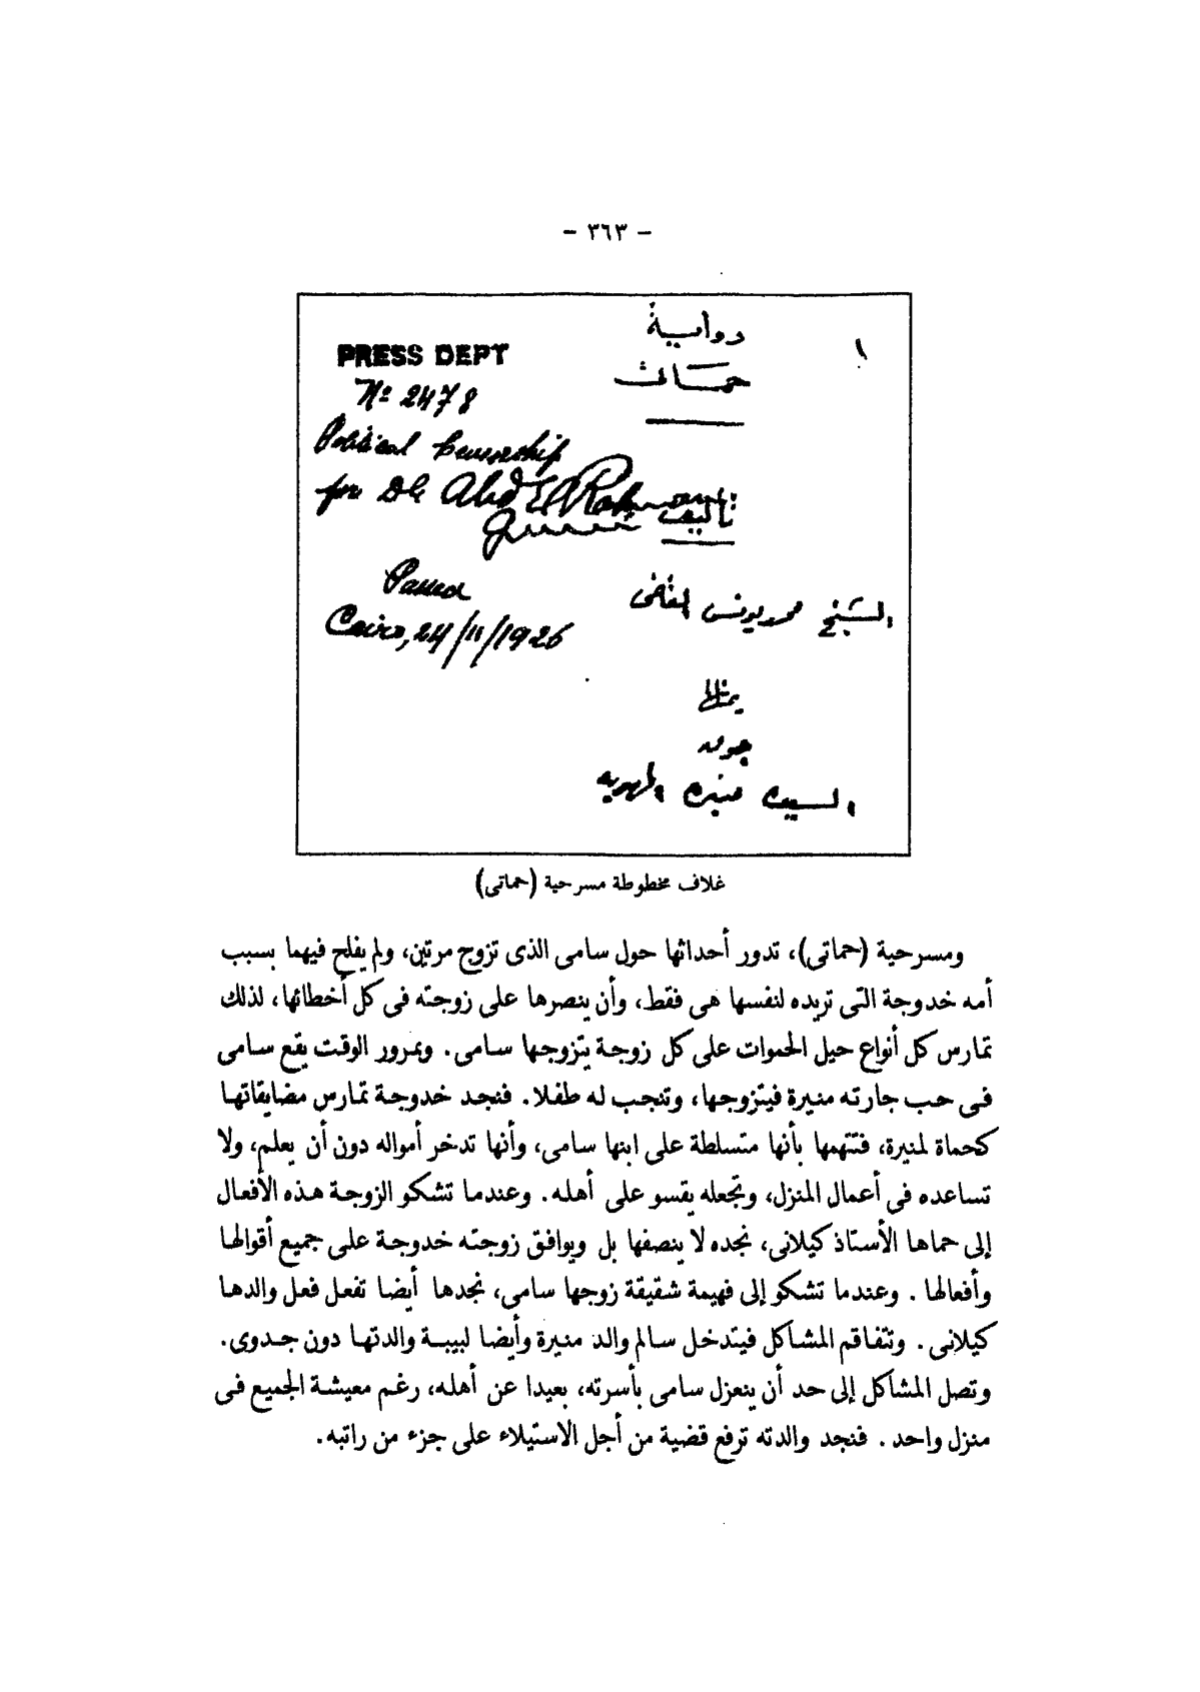 - ٣٦٣ -
١
رواية
حماتى
PRESS DEPT
No 2478
Political Censorship
for DG Abd El Rahman
تأليف
الشيخ محمد يونس القاضى
Passed
Cairo, 24/11/1926
يمثلها
جوقه
السيده منيره المهديه
غلاف مخطوطة مسرحية (حماتى)
ومسرحية (حماتى)، تدور أحداثها حول سامى الذى تزوج مرتين، ولم يفلح فيهما بسبب
أمه خدوجة التى تريده لنفسها هى فقط، وأن ينصرها على زوجته فى كل أخطائها، لذلك
تمارس كل أنواع حيل الحموات على كل زوجة يتزوجها سامى. وبمرور الوقت يقع سامى
فى حب جارته منيرة فيتزوجها، وتنجب له طفلا. فنجد خدوجة تمارس مضايقاتها
كحماة لمنيرة، فتتهمها بأنها متسلطة على ابنها سامى، وأنها تدخر أمواله دون أن يعلم، ولا
تساعده فى أعمال المنزل، وتجعله يقسو على أهله. وعندما تشكو الزوجة هذه الأفعال
إلى حماها الأستاذ كيلانى، نجده لا ينصفها بل ويوافق زوجته خدوجة على جميع أقوالها
وأفعالها . وعندما تشكو إلى فهيمة شقيقة زوجها سامى، نجدها أيضا تفعل فعل والدها
كيلانى . وتتفاقم المشاكل فيتدخل سالم والد منيرة وأيضا لبيبة والدتها دون جدوى.
وتصل المشاكل إلى حد أن ينعزل سامى بأسرته، بعيدا عن أهله، رغم معيشة الجميع فى
منزل واحد . فنجد والدته ترفع قضية من أجل الاستيلاء على جزء من راتبه.